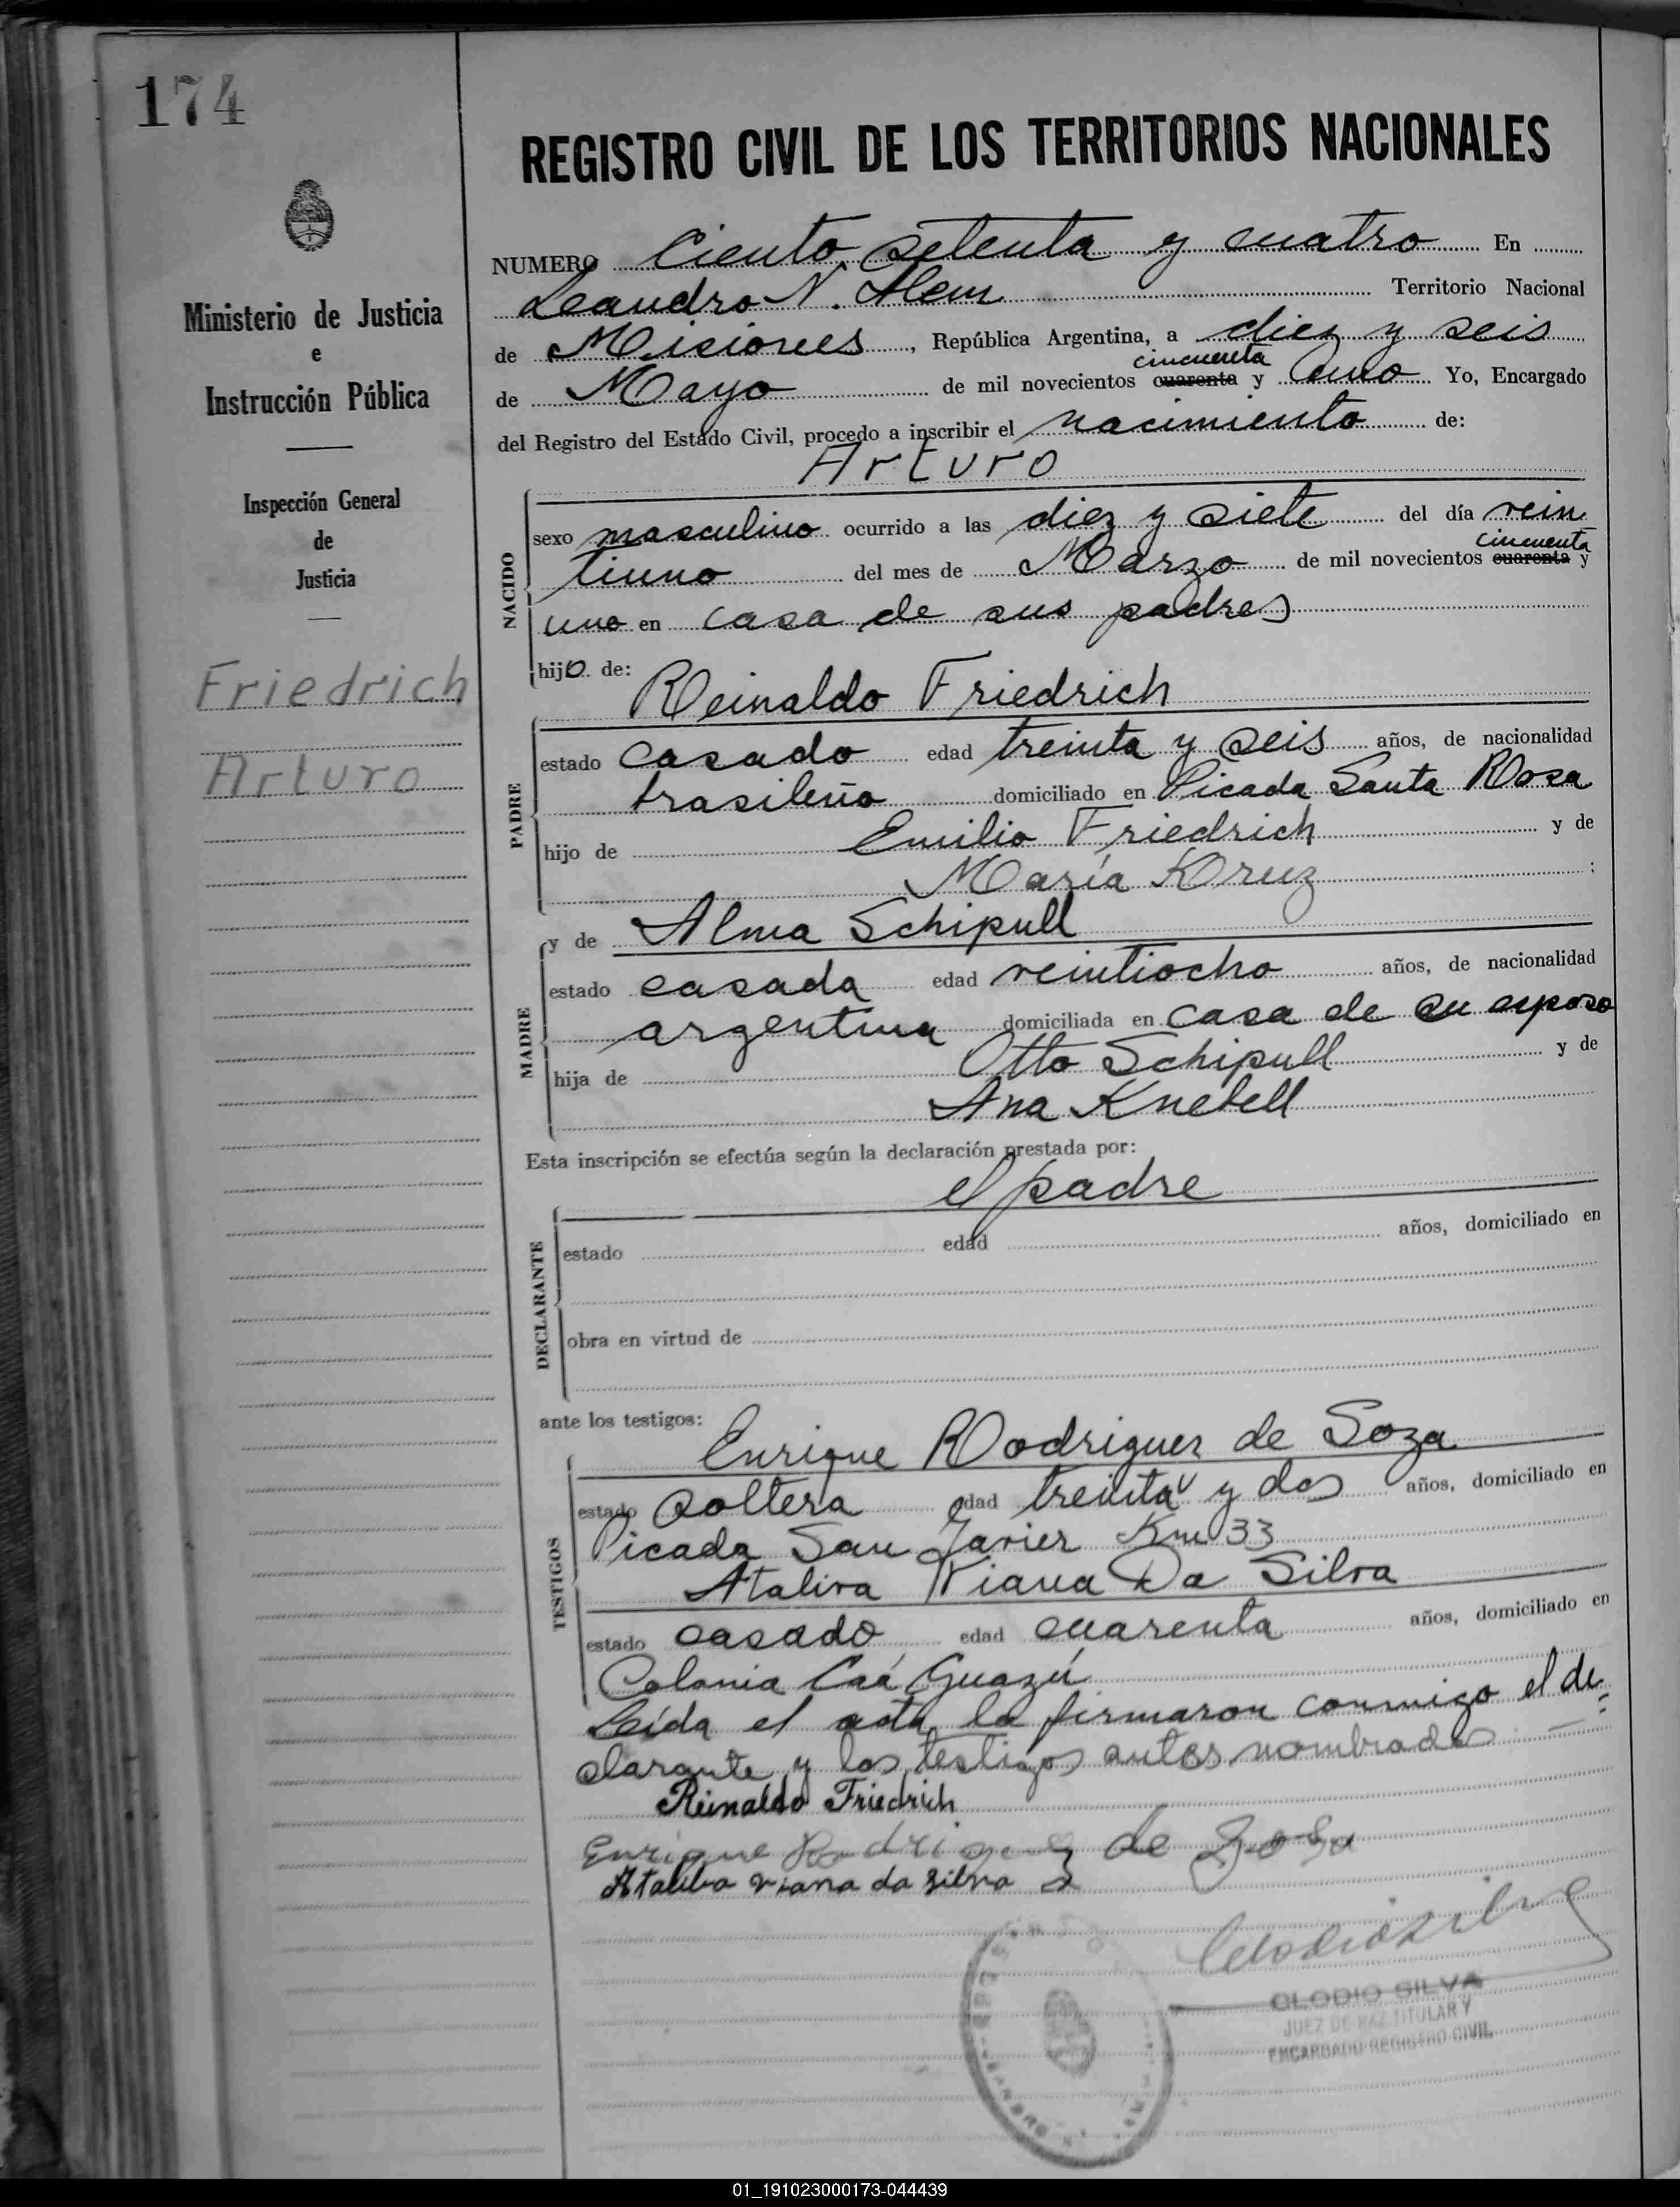 174
Ministerio de Justicia
e
Instrucción Pública
Inspección General
de
Justicia
Friedrich
Arturo
REGISTRO CIVIL DE LOS TERRITORIOS NACIONALES
NUMERO Ciento setenta y cuatro En
Leandro N. Alem Territorio Nacional
de Misiones, República Argentina, a diez y seis
cincuenta
de Mayo de mil novecientos cuarenta y uno Yo, Encargado
del Registro del Estado Civil, procedo a inscribir el nacimiento de:
Arturo
NACIDO
sexo masculino ocurrido a las diez y siete del día vein
cincuenta
tiuno del mes de Marzo de mil novecientos cuarenta y
uno en casa de sus padres
hijo de:
Reinaldo Friedrich
PADRE
estado casado edad treinta y seis años, de nacionalidad
brasileña domiciliado en Picada Santa Rosa
hijo de Emilio Friedrich y de
María Kruz :
MADRE
y de Alma Schipull
estado casada edad veintiocho años, de nacionalidad
argentina domiciliada en casa de su esposo
hija de Otto Schipull y de
Ana Knebell
Esta inscripción se efectúa según la declaración prestada por:
el padre
DECLARANTE
estado edad años, domiciliado en
obra en virtud de
ante los testigos:
Enrique Rodriguez de Soza
TESTIGOS
estado soltera edad treinta y dos años, domiciliado en
Picada San Javier Km 33
Ataliva Viana Da Silva
estado casado edad cuarenta años, domiciliado en
Colonia Caá Guazú
Leída el acta, la firmaron conmigo el de-
clarante y los testigos antes nombrados
Reinaldo Friedrich
Enrique Rodriguez de Sosa
Ataliba viana da silva
CLODIO SILVA
JUEZ DE PAZ TITULAR Y
ENCARGADO REGISTRO CIVIL
01_191023000173-044439